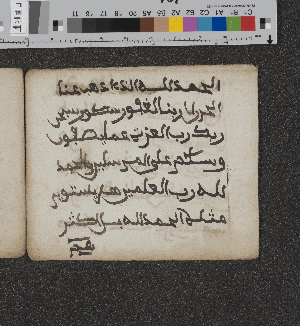 الحمد لله الذي اذهب عنا
الحزن ان ربنا لغفور شكور سبحن
ربك رب العزت عما يصفون
وسلم على المرسلين والحمد
لله رب العلمين
الحمد لله